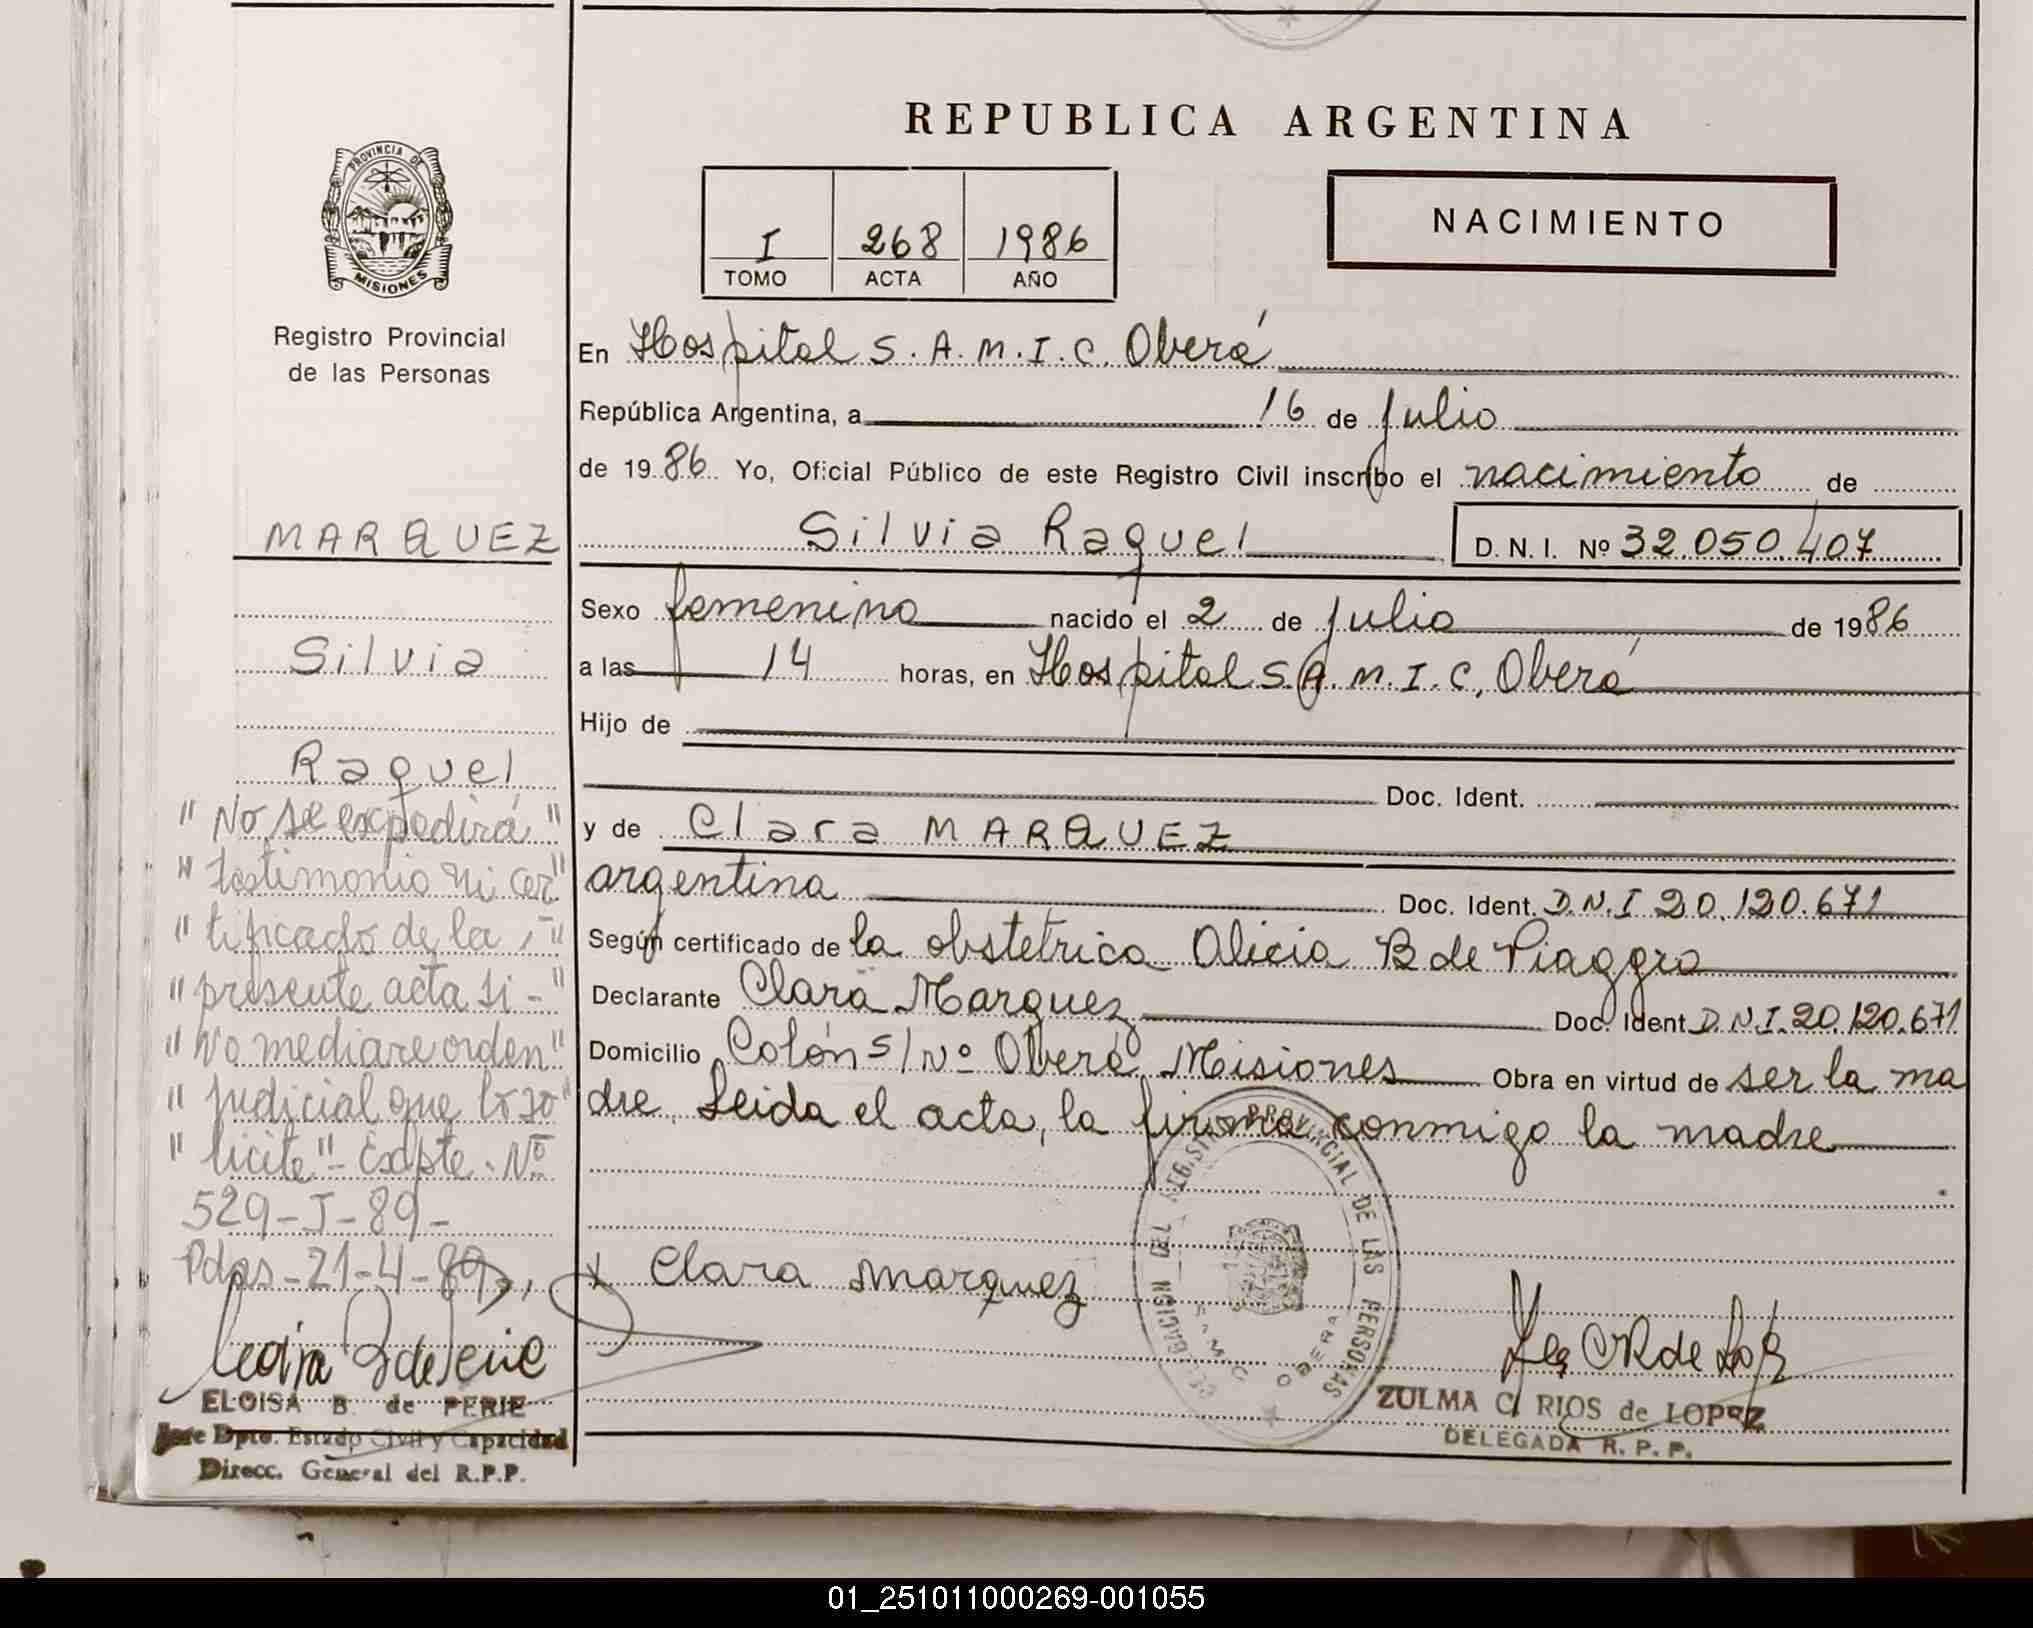 REPUBLICA ARGENTINA
PROVINCIA DE
MISIONES
Registro Provincial
de las Personas
I 268 1986
TOMO ACTA AÑO
NACIMIENTO
En Hospital S.A.M.I.C. Oberá
República Argentina, a 16 de Julio
de 1986 Yo, Oficial Público de este Registro Civil inscribo el nacimiento de
MARQUEZ
Silvia Raquel D.N.I. Nº 32.050.407
Sexo femenino nacido el 2 de Julio de 1986
Silvia
a las 14 horas, en Hospital S.A.M.I.C. Oberá
Hijo de
Raquel
Doc. Ident.
y de Clara MARQUEZ
argentina Doc. Ident. D.N.I 20.120.671
Según certificado de la obstetrica Alicia B de Piaggio
Declarante Clara Marquez Doc. Ident D.N.I. 20.120.671
Domicilio Colón s/Nº Oberá Misiones Obra en virtud de ser la ma
dre. Leida el acta, la firma conmigo la madre
"No se expedirá"
"testimonio ni cer"
"tificado de la"
"presente acta si-"
"no mediare orden"
"judicial que lo so"
"licite"- Expte. Nº
529-J-89-
Pdas-21-4-89
ELOISA B. de PERIE
Jefe Dpto. Estado Civil y Capacidad
Direcc. General del R.P.P.
x Clara Marquez
REGISTRO PROVINCIAL DE LAS PERSONAS
DELEGACION
SAMIC
OBERA
ZULMA C. RIOS de LOPEZ
DELEGADA R.P.P.
01_251011000269-001055